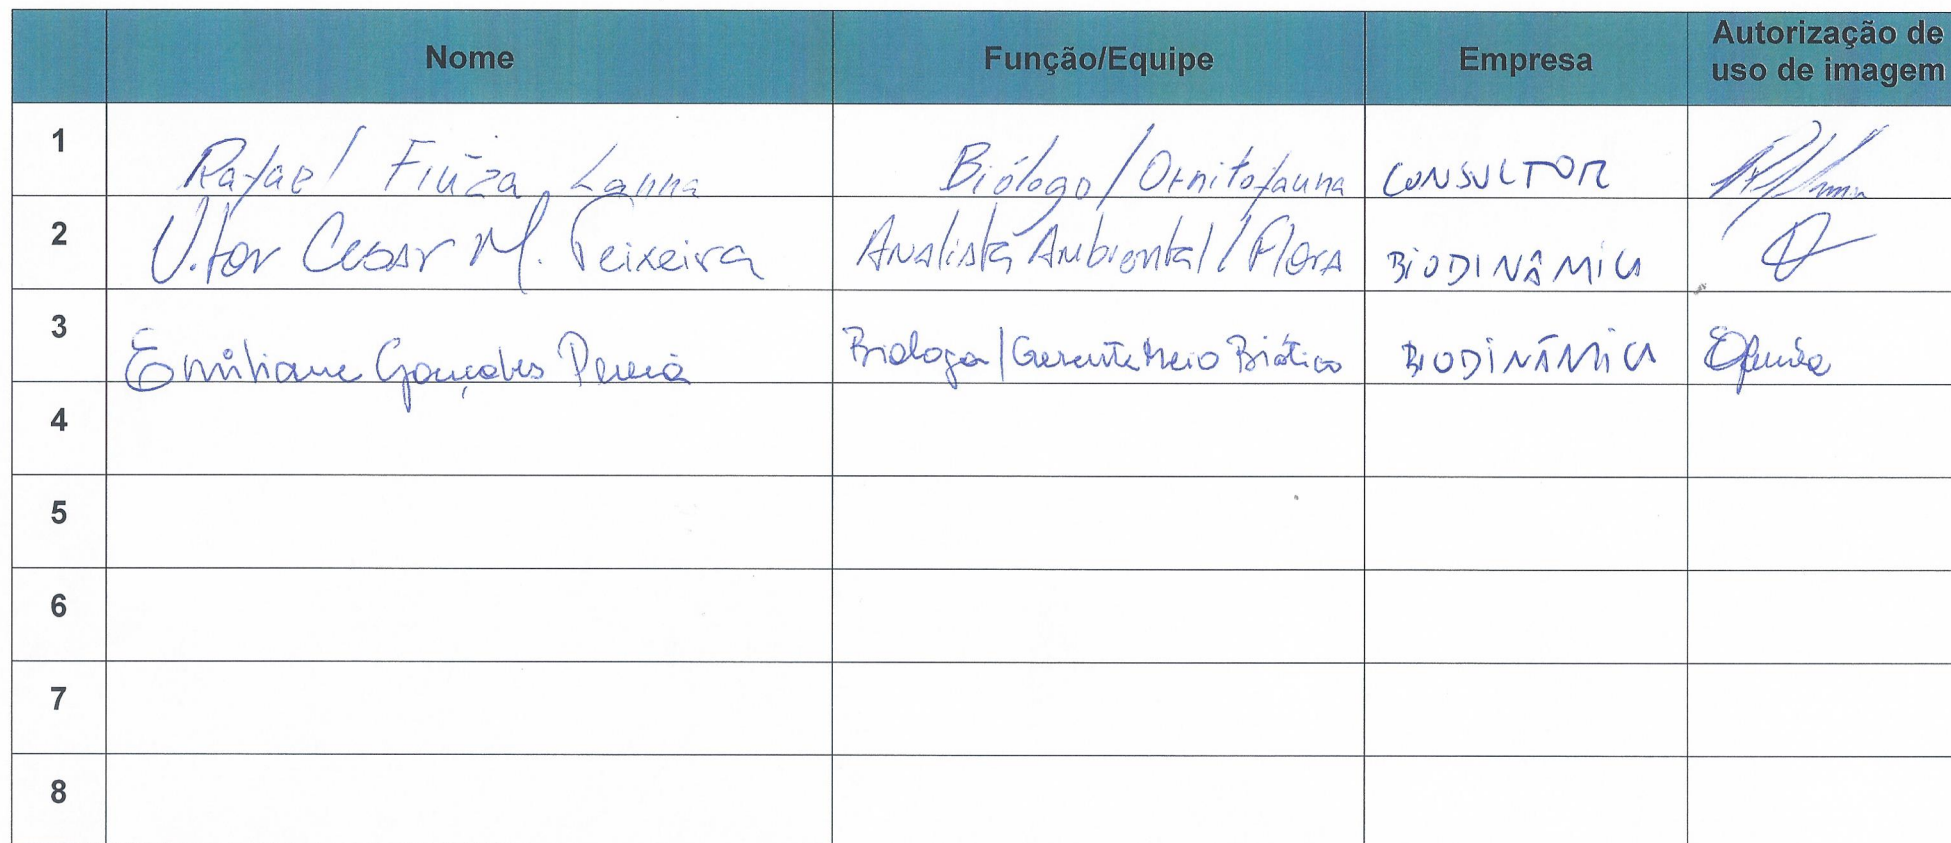 Nome Função/Equipe Empresa Autorização de
uso de imagem
1 Rafael Fiúza Lanna Biólogo/Ornitofauna CONSULTOR
2 Vitor Cesar M. Teixeira Analista Ambiental/Flora BIODINÂMICA
3 Emiliane Gonçalves Pereira Bióloga/Gerente Meio Biótico BIODINÂMICA
4
5
6
7
8